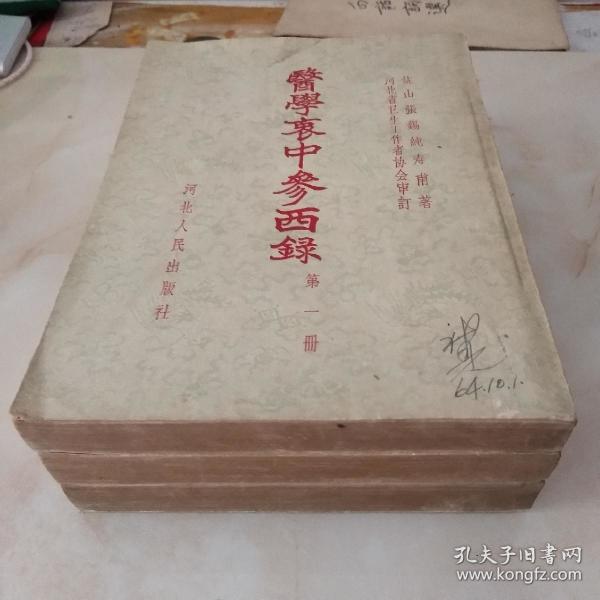 鹽山張錫純寿甫著
河北省卫生工作者协会审訂
醫學衷中參西録
第一冊
河北人民出版社
64.10.1.
孔夫子旧书网
www.kongfz.com